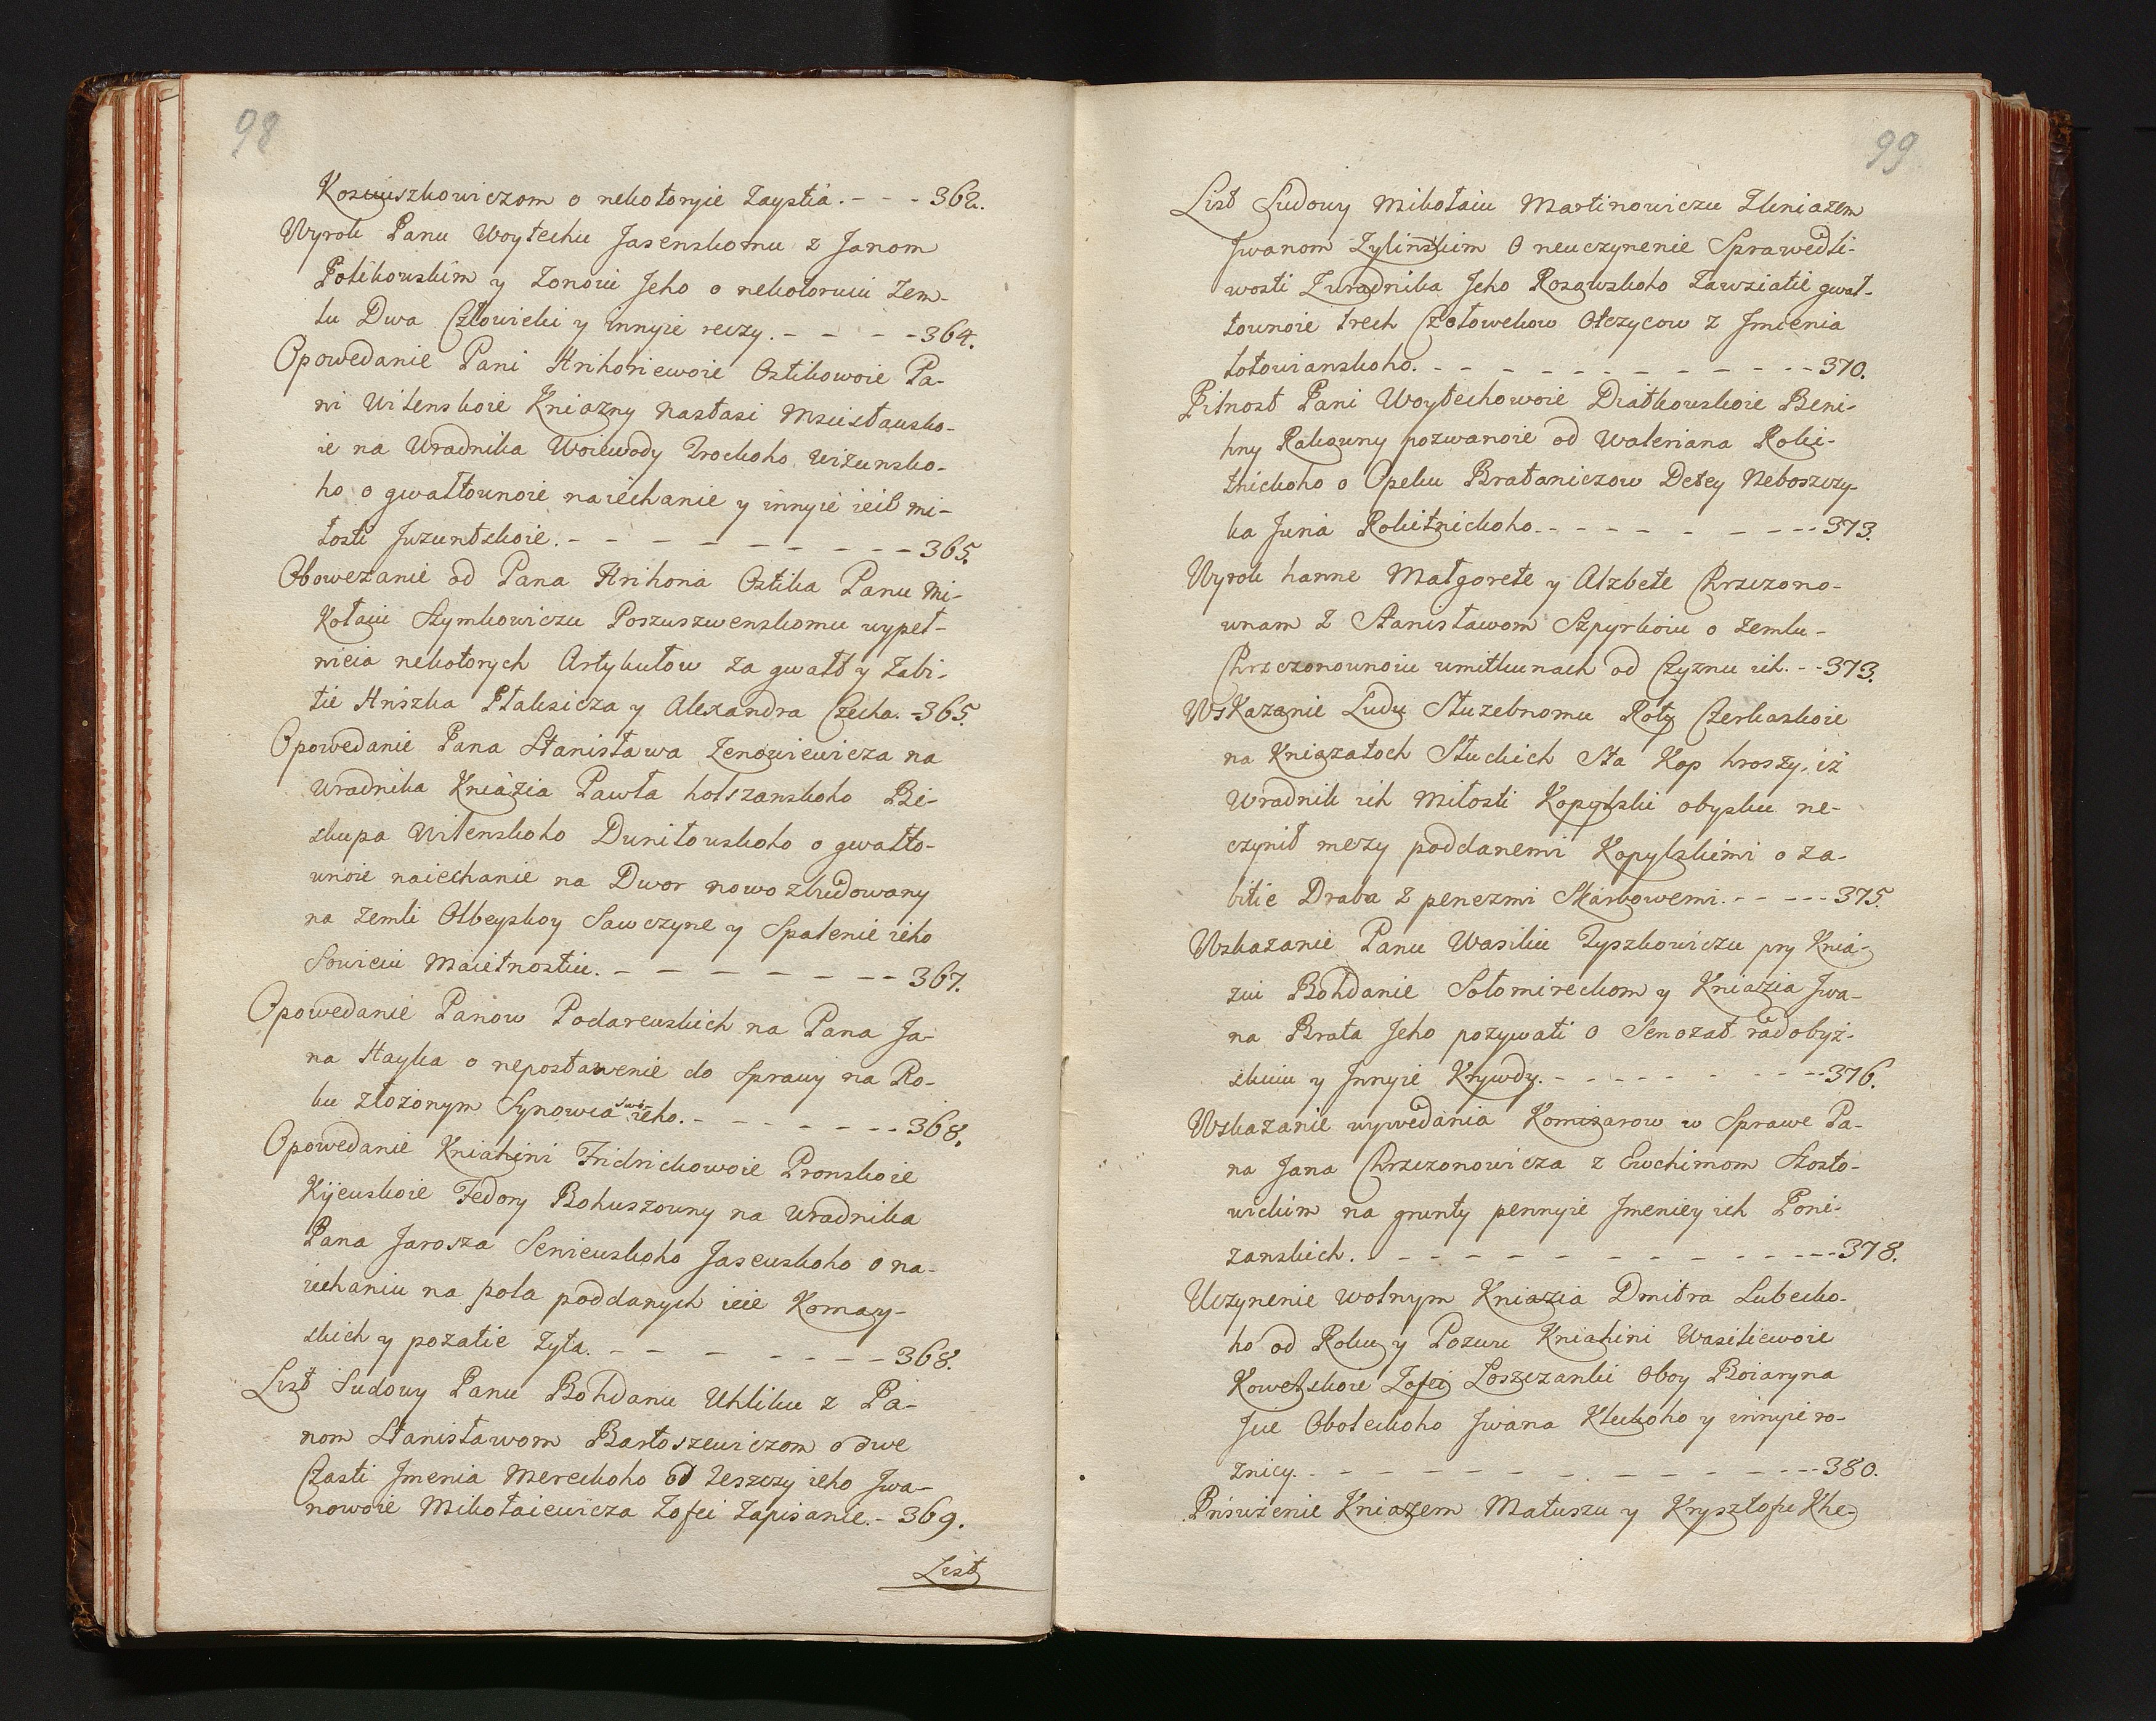 98
Kosciuszkowiczom o nekotoryie Zaystia. - - - 362.
Wyrok Panu Woytechu Jasenskomu z Janom
Polikowskim y Zonoiu Jeho o nekotoruiu Zem-
lu Dwa Człowieki y innyie reczy. - - - - 364.
Opowedanie Pani Hrihoriewoie Ostikowoie Pa-
ni Wilenskoie Kniazny Nastasi Mscisławsko-
ie na Uradnika Woiewody Trockoho Wizunsko-
ho o gwałtownoie naiechanie y innyie ieie mi-
łosti Juzuntskoie. - - - - - - - - - 365.
Obowezanie od Pana Hrihoria Ostika Panu Mi-
kołaiu Szymkowiczu Poszuszwenskomu wypeł-
nieia nekotorych Artykułow za gwałt y Zabi-
tie Hriszka Ptaksicza y Alexandra Czecha. - 365.
Opowedanie Pana Stanisława Zenowiewicza na
Uradnika Kniazia Pawła holszanskoho Bi-
skupa Wilenskoho Duniłowskoho o gwałto-
wnoie naiechanie na Dwor nowo zbudowany
na Zemli Olbeyskoy Sawczyne y Spalenie ieho
Sowieiu Maietnostiu. - - - - - - - - 367.
Opowedanie Panow Podarewskich na Pana Ja-
na Hayka o nepostawenie do Sprawy na Ro-
ku złożonym Synowia Swo ieho. - - - - - - - 368.
Opowedanie Kniahini Fridrichowoie Pronskoie
Kijewskoie Fedory Bohuszowny na Uradnika
Pana Jarosza Seniewskoho Jasewskoho o na-
iechaniu na pola poddanych ieie Komay-
skich y pozatie Zyta. - - - - - - - 368.
List Sudowy Panu Bohdanu Uhliku z Pa-
nom Stanisławom Bartoszewiczom o dwe
Czasti Jmenia Mereckoho od Teszczy ieho Jwa-
nowoie Mikołaiewicza Zofei Zapisanie. - 369.
List
99
List Sudowy Mikołaiu Martinowiczu Zkniazem
Jwanom Zylinskim O neuczynenie Sprawedli-
wosti Zuradnika Jeho Rosawskoho Zawziatie gwał-
townoie trech Czołowekow Otczycow z Jmienia
łotowianskoho. - - - - - - - - - - 370.
Pilnost Pani Woytechowoie Diatkowskoie Beni-
hny Rakawny pozwanoie od Waleriana Roki-
tnickoho o Opeku Brataniczow Detey Neboszczy-
ka Juria Rokitnickoho. - - - - - - - - 373.
Wyrok hanne Małgorete y Alzbete Chrzczono-
wnam z Stanisławom Szpyrkoiu o Zemlu -
Chrzczonownoiu umitkunach od Czyznu ich. - - 373.
Wskazanie Ludu Służebnomu Roty Czerkaskoie
na Kniazatoch Słuckich Sta Kop hroszy, iż
Uradnik ich Miłosti Kopylski obysku ne-
czynił mezy poddanemi Kopylskimi o za-
bitie Draba z penezmi Skarbowemi. - - - - 375.
Wskazanie Panu Wasiliu Tyszkowiczu pry Knia-
ziu Bohdanie Sołomireckom y Kniazia Jwa-
na Brata Jeho pozywati o Senożat radobyż-
skuiu y Jnnyie Krywdy. - - - - - - - - 376.
Wskazanie wywedania Komisarow w Sprawe Pa-
na Jana Chrzczonowicza z Ewchimom Szosto-
wickim na grunty pennyie Jmeniey ich Poni-
zanskich. - - - - - - - - - - - 378.
Uczynenie wolnym Kniazia Dmitra Lubecko-
ho od Roku y Pozwu Kniahini Wasiliewoie
Kowelskoie Zofei Łoszczanki Oboy Boiaryna
Jeie Oboleckoho Jwana Kleckoho y innyie ro-
znicy. - - - - - - - - - - - 380.
Prisużenie Kniazem Matuszu y Krysztofu Khe-